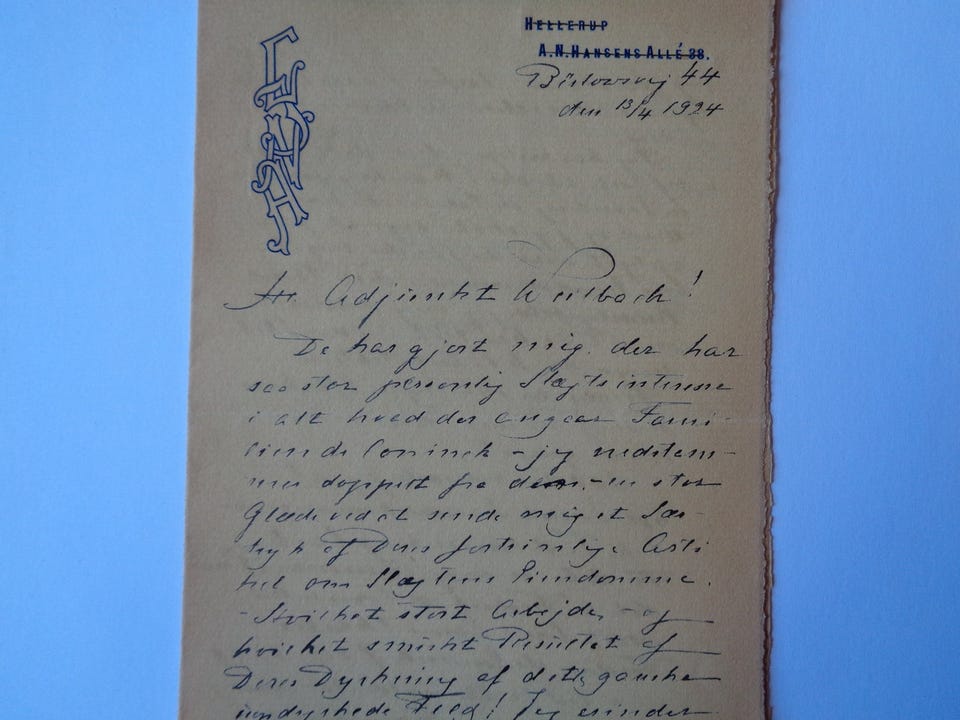 HELLERUP
A.N.HANSENS ALLÉ 38.
Bülowsvej 44
den 13/4 1924
Hr. Adjunkt Weilbach!
De har gjort mig, der har
saa stor personlig Slægtsinteresse
i alt hvad der angaar Fami-
lien de Coninck – jeg nedstam-
mer doppelt fra dem, – en stor
Glæde ved at sende mig et Sær-
tryk af Deres fortrinlige Arti
kel om Slægtens Ejendomme.
– Hvilket stort Arbejde, – og
hvilket smukt Resultat af
Deres Dyrkning af dette ganske
uopdyrkede Felt! Jeg erindrer